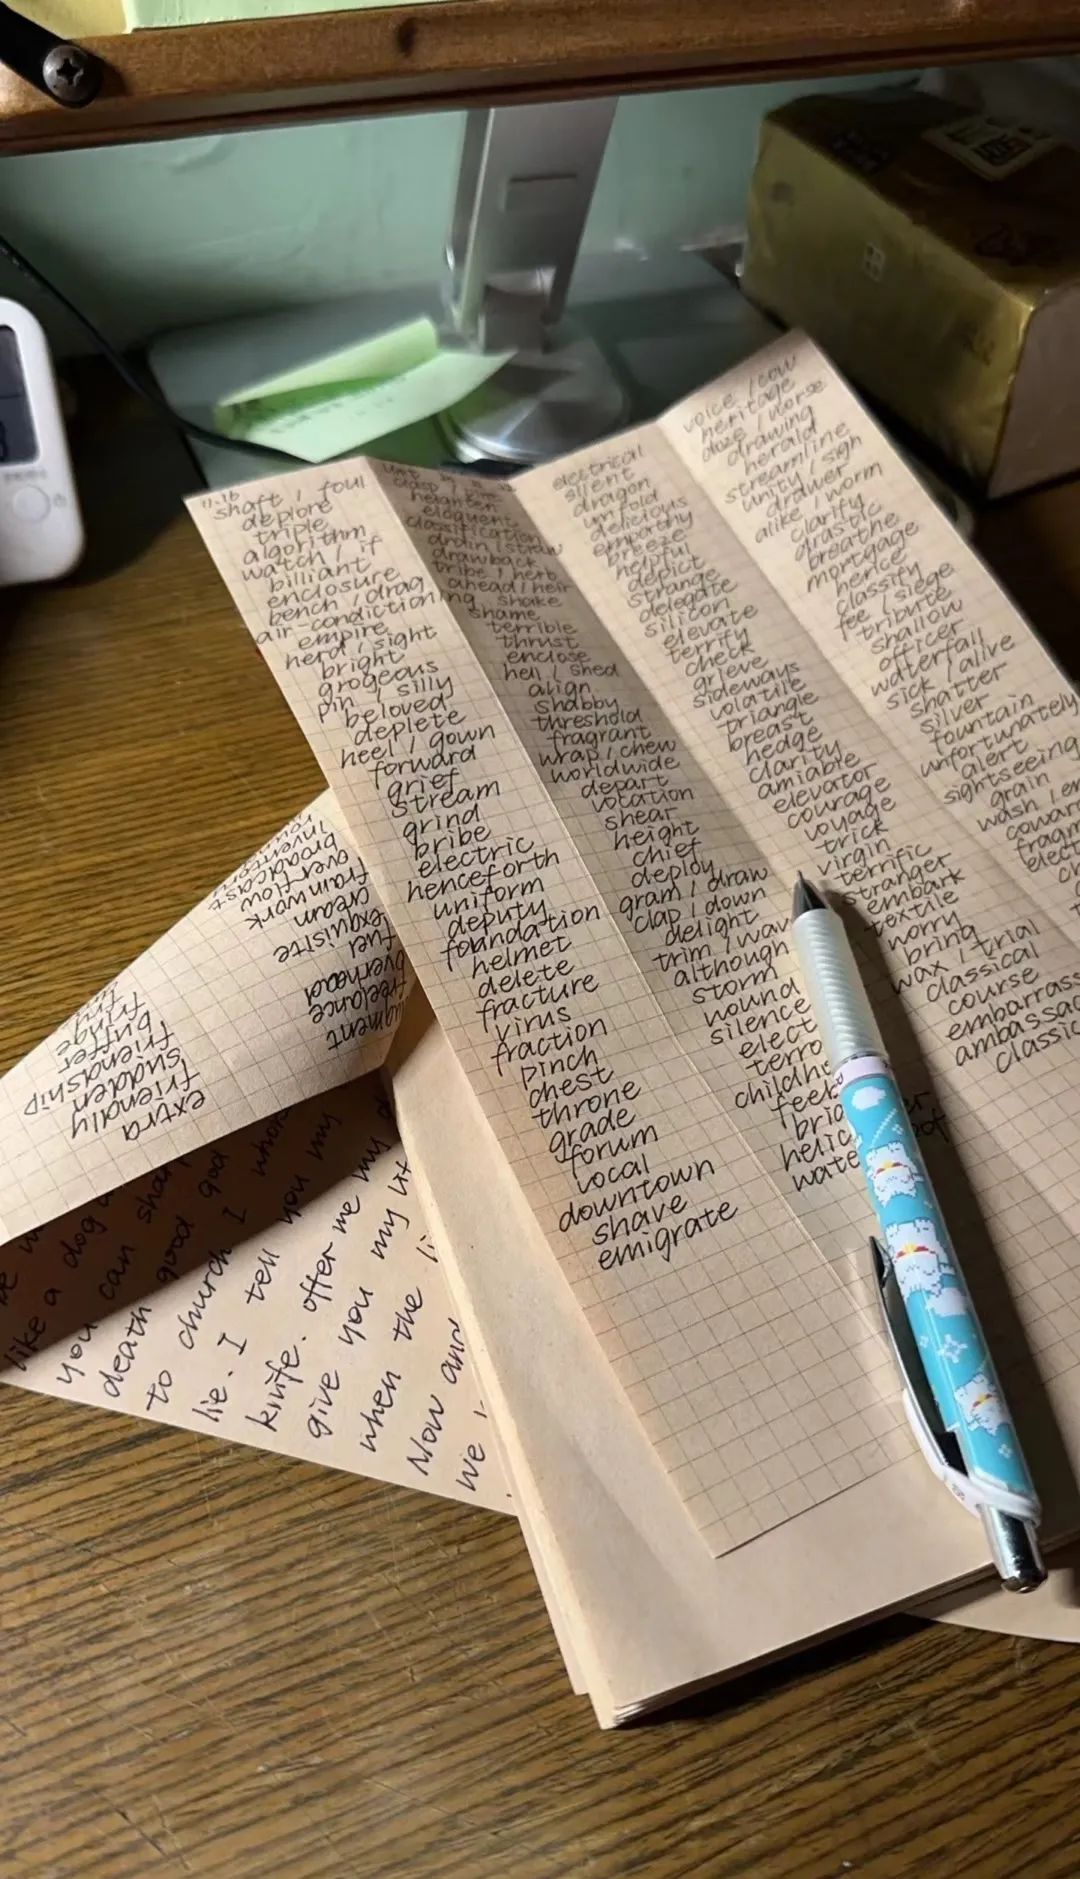 11.16
shaft / foul
deplore
triple
algorithm
watch / if
billiant
enclosure
bench / drag
air-condictioning
empire
nerd / sight
bright
grogeous
pin / silly
beloved
deplete
heel / gown
forward
grief
stream
grind
bribe
electric
henceforth
uniform
deputy
foundation
helmet
delete
fracture
virus
fraction
pinch
chest
throne
grade
forum
local
downtown
shave
emigrate
clasp
heighten
eloquent
classification
drain / straw
drawback
tribe / herb
ahead / heir
shake
shame
terrible
thrust
enclose
hell / shed
align
shabby
threshold
fragrant
wrap / chew
worldwide
depart
vocation
shear
height
chief
deploy
gram / draw
clap / down
delight
trim / wav
although
storm
wound
silence
elect
terro
childh
feeb
bria
helic
wate
electrical
silent
dragon
unfold
delicious
emparthy
breeze
helpful
depict
strange
delegate
silicon
elevate
terrify
check
grieve
sideways
volatile
triangle
breast
hedge
clarity
amiable
elevator
courage
voyage
trick
virgin
terrific
stranger
embark
textile
worry
bring
wax / trial
classical
course
embarrass
ambassad
classic
voice / cow
heritage
doze / horse
drawing
herald
streamline
unity / sigh
drawer
alike / worm
clarify
drastic
breathe
mortgage
hence
classify
fee / siege
tribute
shallow
officer
waterfall
sick / alive
shatter
silver
fountain
unfortunately
alert
sightseeing
grain
wash / em
cowar
fragm
elect
extra
friendly
sudden
friendship
buffer
fringe
augment
freelance
overhead
fuel
exquisite
cream
framwork
overflow
broadcast
invento
like a dog
you can sha
death good god
to church I
lie. I tell you my
knife. offer me my
give you my li
when the li
Now and
we